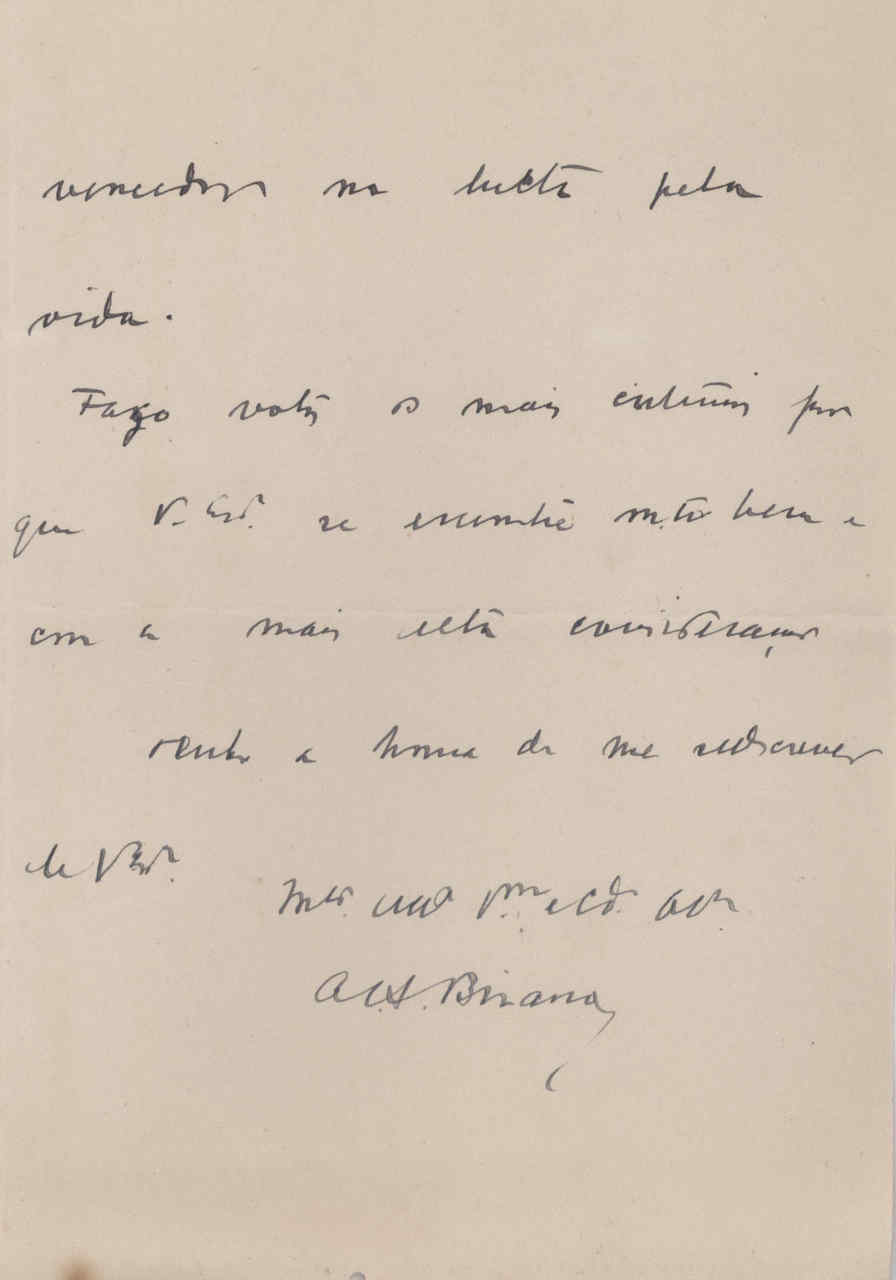 vencedores na lucta pela
vida.
Faço votos os mais sinceros por
que V. Exª. se encontre m.to bem e
com a mais alta consideração
tenho a honra de me subscrever
de V Exª.
M.to e Cdo.